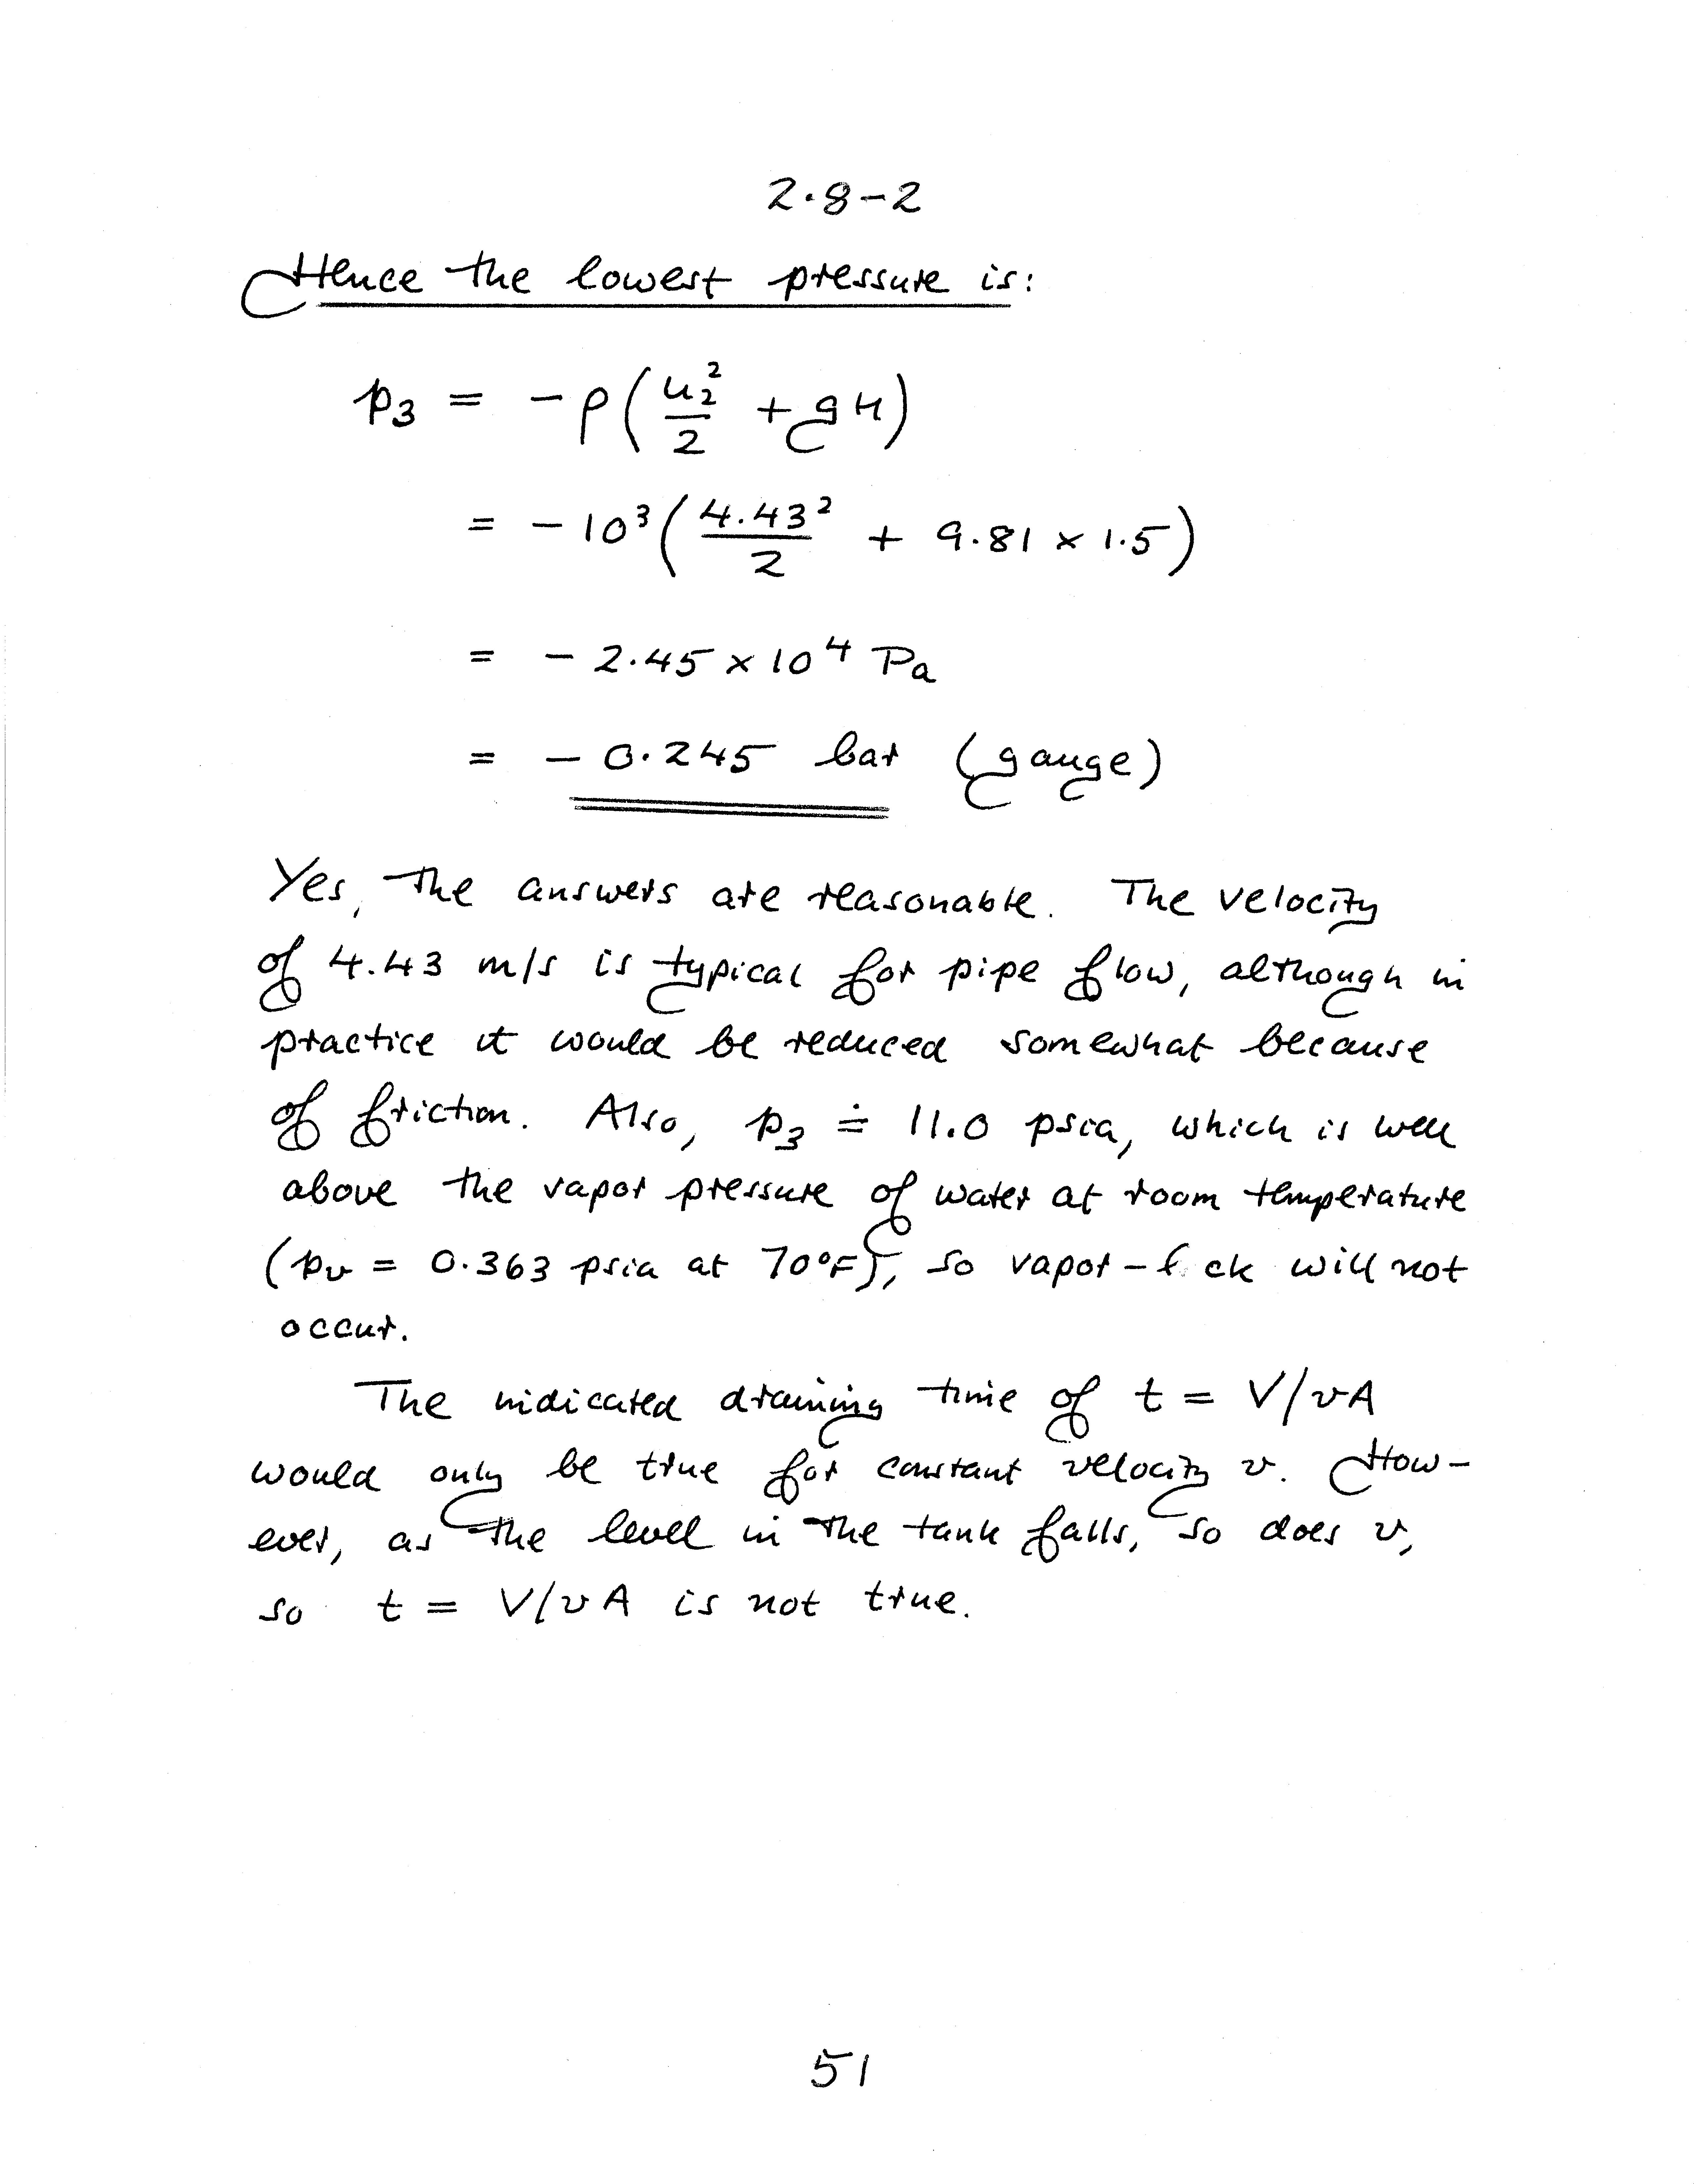 2.8-2
Hence the lowest pressure is:
p₃ = -ρ(u₂²/2 + gH)
= -10³(4.43²/2 + 9.81 × 1.5)
= -2.45 × 10⁴ Pa
= -0.245 bar (gauge)
Yes, the answers are reasonable. The velocity
of 4.43 m/s is typical for pipe flow, although in
practice it would be reduced somewhat because
of friction. Also, p₃ ≐ 11.0 psia, which is well
above the vapor pressure of water at room temperature
(pᵥ = 0.363 psia at 70°F), so vapor-lock will not
occur.
The indicated draining time of t = V/vA
would only be true for constant velocity v. How-
ever, as the level in the tank falls, so does v,
so t = V/vA is not true.
51